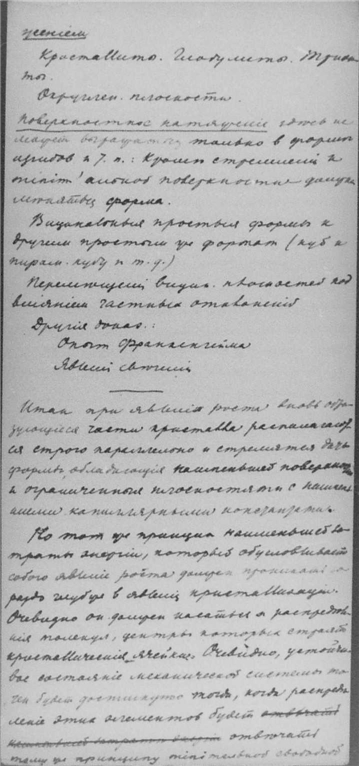 женіем
Кристаллиты. Глобулиты. Трихи-
ты.
Округлен. плоскости.
Поверхностное натяженіе здесь не
можетъ выражаться только в формѣ
и т. п.: Кромѣ стремленій к
minim'альной поверхности должна
форма.
Вицинальныя простыя формы к
другим простым же формам (куб и
пирам. кубу и т. д.)
Перемѣщеніе вицин. плоскостей под
вліяніем частных
Другія доказ.:
Опыт Франкенгейма
Явленія
Итак при явленіи роста вновь обра-
зующіяся части кристалла располагают-
ся строго параллельно и стремятся дать
формы, обладающія наименьшей поверхн.
и ограниченныя плоскостями с наимень-
шими капиллярными константами.
Но тот же принцип наименьшей за-
траты энергіи, который обусловливает
собою явленіе роста должен проникать го-
раздо глубже в явленія кристаллизаціи.
Очевидно он должен касаться и распредѣле-
нія молекул, центры которых строят
кристаллическія ячейки. Очевидно, устойчи-
вое состояніе механической системы то-
чек будет достигнуто тогда, когда распредѣ-
леніе этих элементов будет отвѣчать
отвѣчать
тому же принципу minimальной свободной